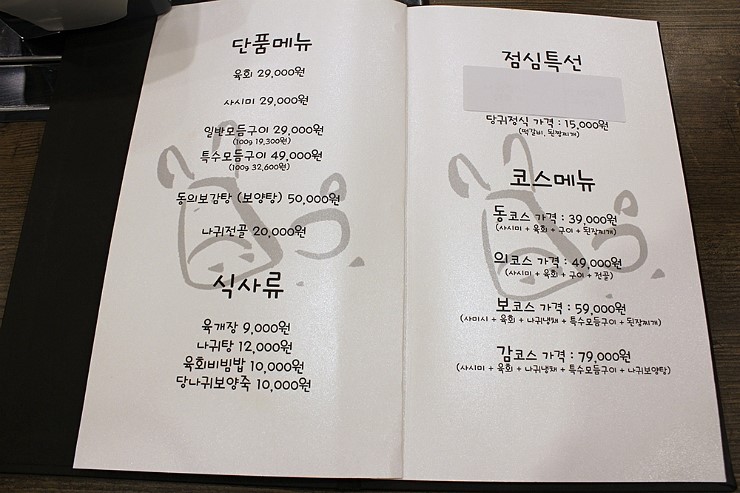 단품메뉴
육회 29,000원
사시미 29,000원
일반모듬구이 29,000원
(100g 19,300원)
특수모듬구이 49,000원
(100g 32,600원)
동의보감탕 (보양탕) 50,000원
나귀전골 20,000원
식사류
육개장 9,000원
나귀탕 12,000원
육회비빔밥 10,000원
당나귀보양죽 10,000원
점심특선
당귀정식 가격 : 15,000원
(떡갈비, 된짱찌개)
코스메뉴
동코스 가격 : 39,000원
(사시미 + 육회 + 구이 + 된장찌개)
의코스 가격 : 49,000원
(사시미 + 육회 + 구이 + 전골)
보코스 가격 : 59,000원
(사미시 + 육회 + 나귀냉채 + 특수모듬구이 + 된장찌개)
감코스 가격 : 79,000원
(사시미 + 육회 + 나귀냉채 + 특수모듬구이 + 나귀보양탕)